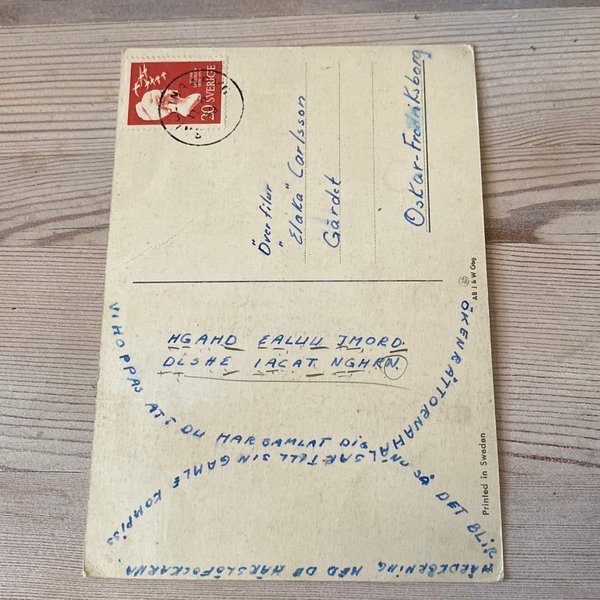 20 SVERIGE
Över filur
"Elaka" Carlsson
Gårdet
Oskar-Fredriksborg
HGAHD EALUU IMORD.
DLSHE IACAT NGHRN.
VI HOPPAS ATT DU HAR SAMLAT DIG NU SÅ DET BLIR
MED DE
ÖKENRÅTTORNA HÄLSAR TILL SIN GAMLE KOMPISS
AB J & W
Printed in Sweden